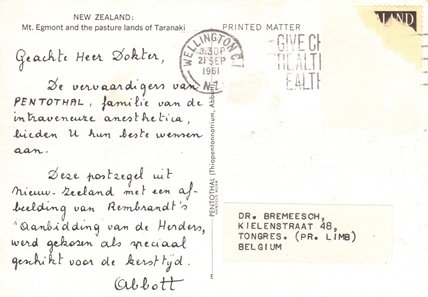 NEW ZEALAND:
Mt. Egmont and the pasture lands of Taranaki
PRINTED MATTER
ALAND
WELLINGTON C1
330P
21 SEP
1961
N.Z.
GIVE CH
HEALTH
EALTH
Geachte Heer Dokter,
De vervaardigers van
PENTOTHAL, familie van de
intraveneuze anesthetica,
bieden U hun beste wensen
aan.
Deze postzegel uit
Nieuw-Zeeland met een af-
beelding van Rembrandt's
"Aanbidding van de Herders,
werd gekozen als speciaal
geschikt voor de kersttijd.
Abbott
PENTOTHAL (Thiopentonnatrium, Abbott)
DR. BREMEESCH,
KIELENSTRAAT 48,
TONGRES. (PR. LIMB)
BELGIUM